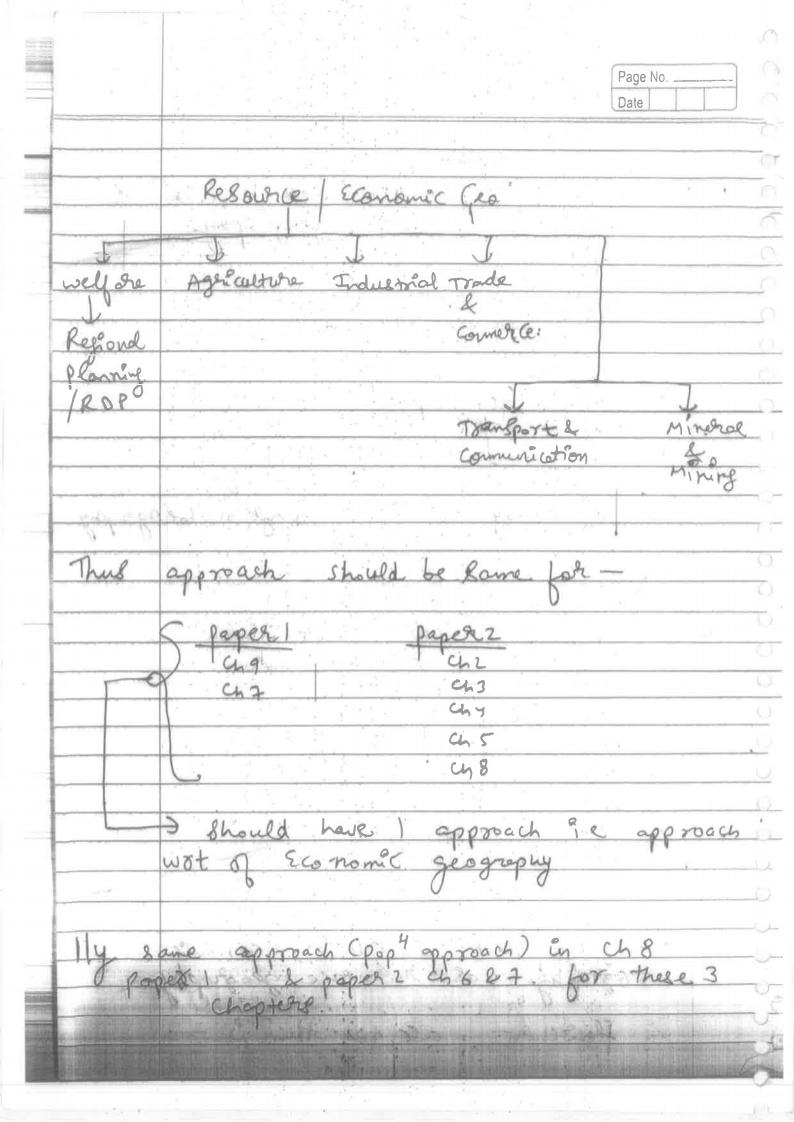 Page No.
Date
Resource / Economic Geo
welfare Agriculture Industrial Trade
&
Commerce:
Regional
Planning
/RDP
Transport & Mineral
Communication &
Mining
Thus approach should be same for —
Paper 1 Paper 2
Ch 9 Ch 2
Ch 7 Ch 3
Ch 4
Ch 5
Ch 8
Should have 1 approach i.e approach
wrt of Economic geography
lly same approach (popⁿ approach) in ch 8
paper 1 & paper 2 ch 6 & 7. for these 3
chapters.